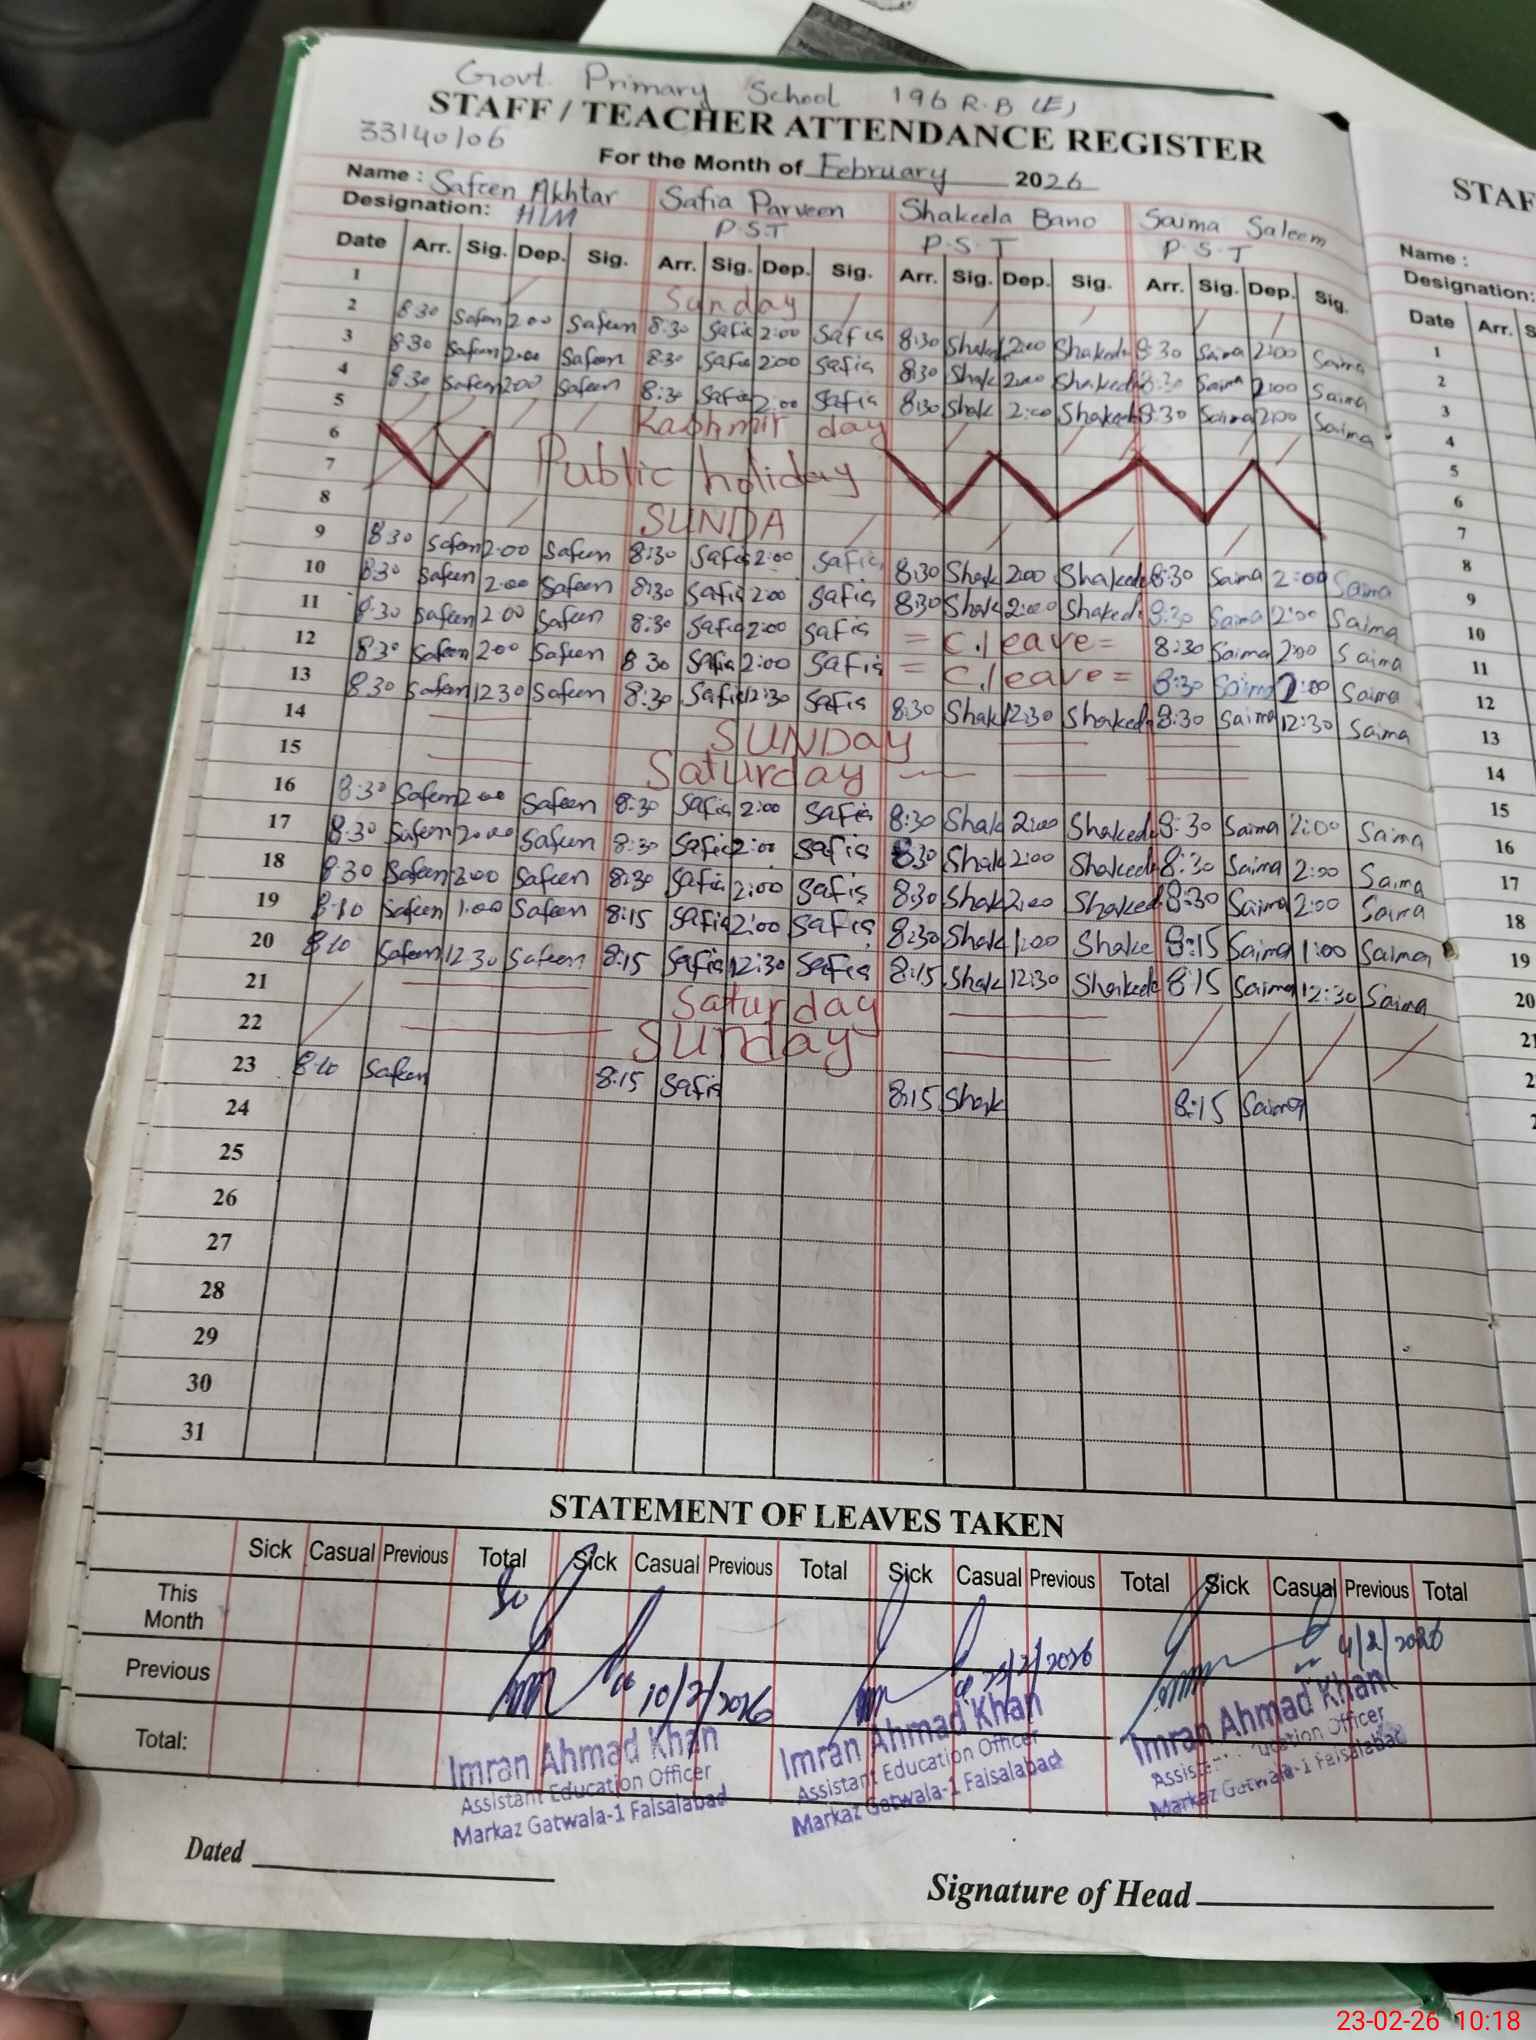 Govt. Primary School 196 R.B (E)
STAFF / TEACHER ATTENDANCE REGISTER
33140106
For the Month of February 2026
Name : Safeen Akhtar Safia Parveen Shakeela Bano Saima Saleem
Designation: H/M P.S.T P.S.T P.S.T
Date Arr. Sig. Dep. Sig. Arr. Sig. Dep. Sig. Arr. Sig. Dep. Sig. Arr. Sig. Dep. Sig.
1 Sunday
2 8:30 Safeen 2:00 Safeen 8:30 Safia 2:00 Safia 8:30 Shakeela 2:00 Shakeela 8:30 Saima 2:00 Saima
3 8:30 Safeen 2:00 Safeen 8:30 Safia 2:00 Safia 8:30 Shak 2:00 Shakeela 8:30 Saima 2:00 Saima
4 8:30 Safeen 2:00 Safeen 8:30 Safia 2:00 Safia 8:30 Shak 2:00 Shakeela 8:30 Saima 2:00 Saima
5 Kashmir day
6 Public holiday
7
8 SUNDA
9 8:30 Safeen 2:00 Safeen 8:30 Safia 2:00 Safia 8:30 Shak 2:00 Shakeela 8:30 Saima 2:00 Saima
10 8:30 Safeen 2:00 Safeen 8:30 Safia 2:00 Safia 8:30 Shak 2:00 Shakeela 8:30 Saima 2:00 Saima
11 8:30 Safeen 2:00 Safeen 8:30 Safia 2:00 Safia = C.leave = 8:30 Saima 2:00 Saima
12 8:30 Safeen 2:00 Safeen 8:30 Safia 2:00 Safia = C.leave = 8:30 Saima 2:00 Saima
13 8:30 Safeen 12:30 Safeen 8:30 Safia 12:30 Safia 8:30 Shak 12:30 Shakeela 8:30 Saima 12:30 Saima
14 SUNDAY
15 Saturday
16 8:30 Safeen 2:00 Safeen 8:30 Safia 2:00 Safia 8:30 Shak 2:00 Shakeela 8:30 Saima 2:00 Saima
17 8:30 Safeen 2:00 Safeen 8:30 Safia 2:00 Safia 8:30 Shak 2:00 Shakeela 8:30 Saima 2:00 Saima
18 8:30 Safeen 2:00 Safeen 8:30 Safia 2:00 Safia 8:30 Shak 2:00 Shakeela 8:30 Saima 2:00 Saima
19 8:10 Safeen 1:00 Safeen 8:15 Safia 2:00 Safia 8:30 Shak 1:00 Shake 8:15 Saima 1:00 Saima
20 8:10 Safeen 12:30 Safeen 8:15 Safia 12:30 Safia 8:15 Shak 12:30 Shakeela 8:15 Saima 12:30 Saima
21 Saturday
22 Sunday
23 8:10 Safeen 8:15 Safia 8:15 Shak 8:15 Saima
24
25
26
27
28
29
30
31
STATEMENT OF LEAVES TAKEN
Sick Casual Previous Total Sick Casual Previous Total Sick Casual Previous Total Sick Casual Previous Total
This Month
Previous
Total:
10/2/2026 23/2/2026 4/2/2026
Imran Ahmad Khan
Assistant Education Officer
Markaz Gatwala-1 Faisalabad
Imran Ahmad Khan
Assistant Education Officer
Markaz Gatwala-1 Faisalabad
Imran Ahmad Khan
Assistant Education Officer
Markaz Gatwala-1 Faisalabad
Dated
Signature of Head
STAF
Name :
Designation:
Date Arr. S
1
2
3
4
5
6
7
8
9
10
11
12
13
14
15
16
17
18
19
20
21
23-02-26 10:18